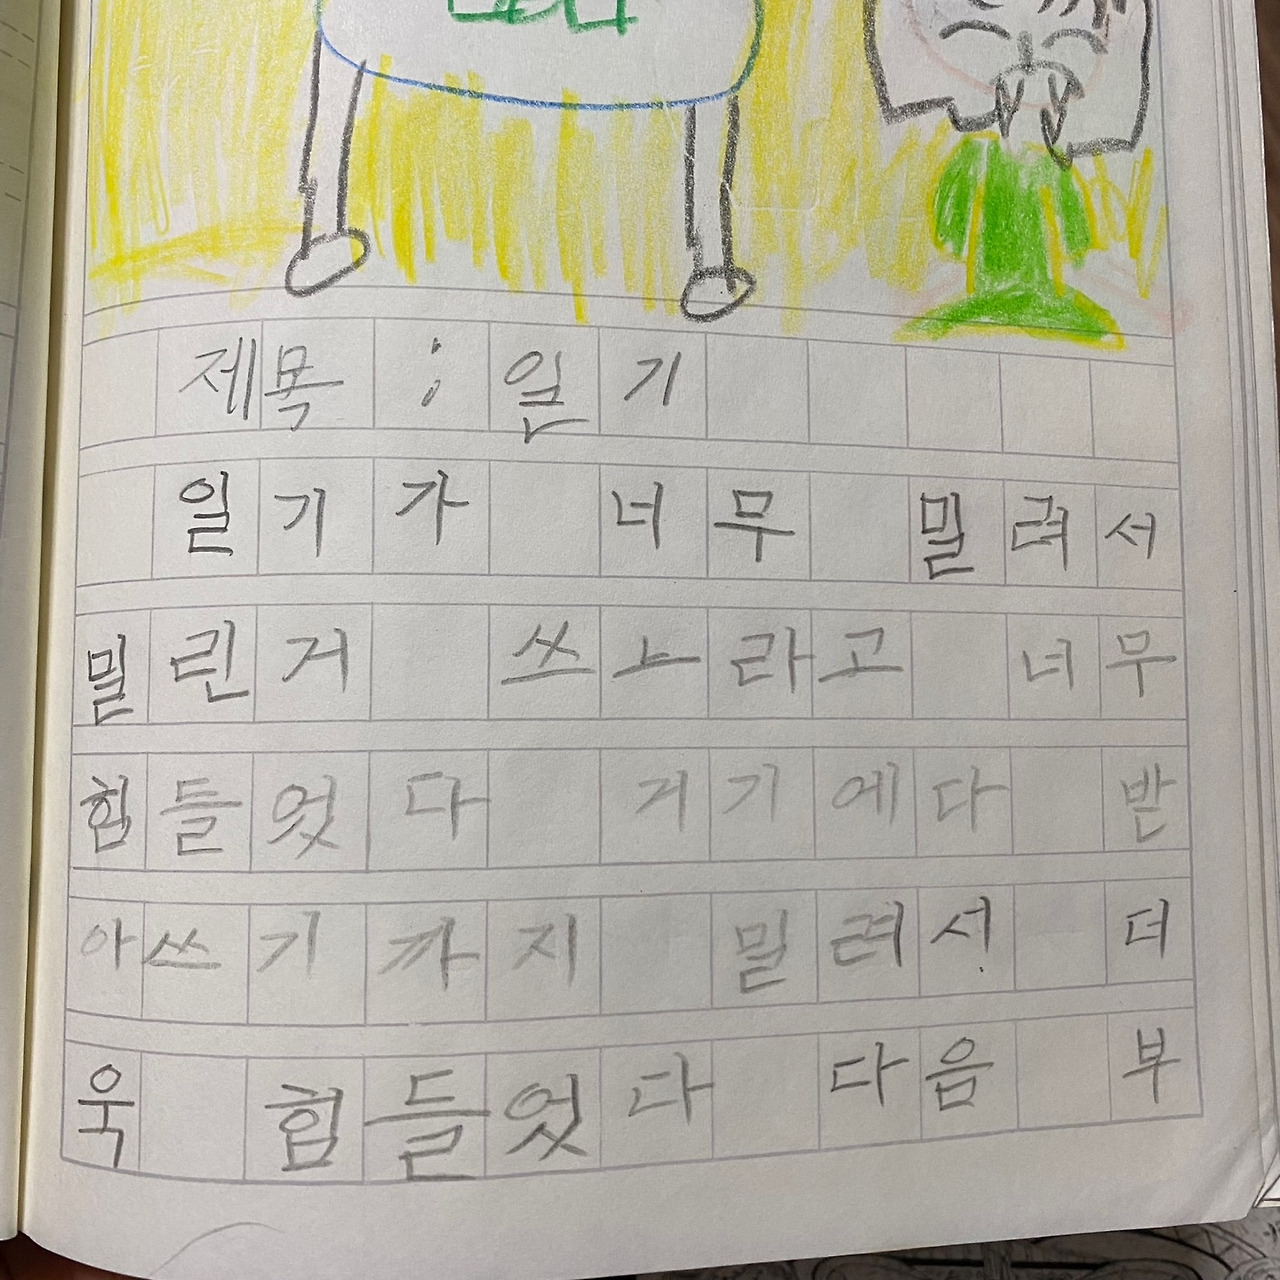 제목 ; 일기
일기가 너무 밀려서
밀린거 쓰느라고 너무
힘들었다 거기에다 받
아쓰기까지 밀려서 더
욱 힘들었다 다음 부